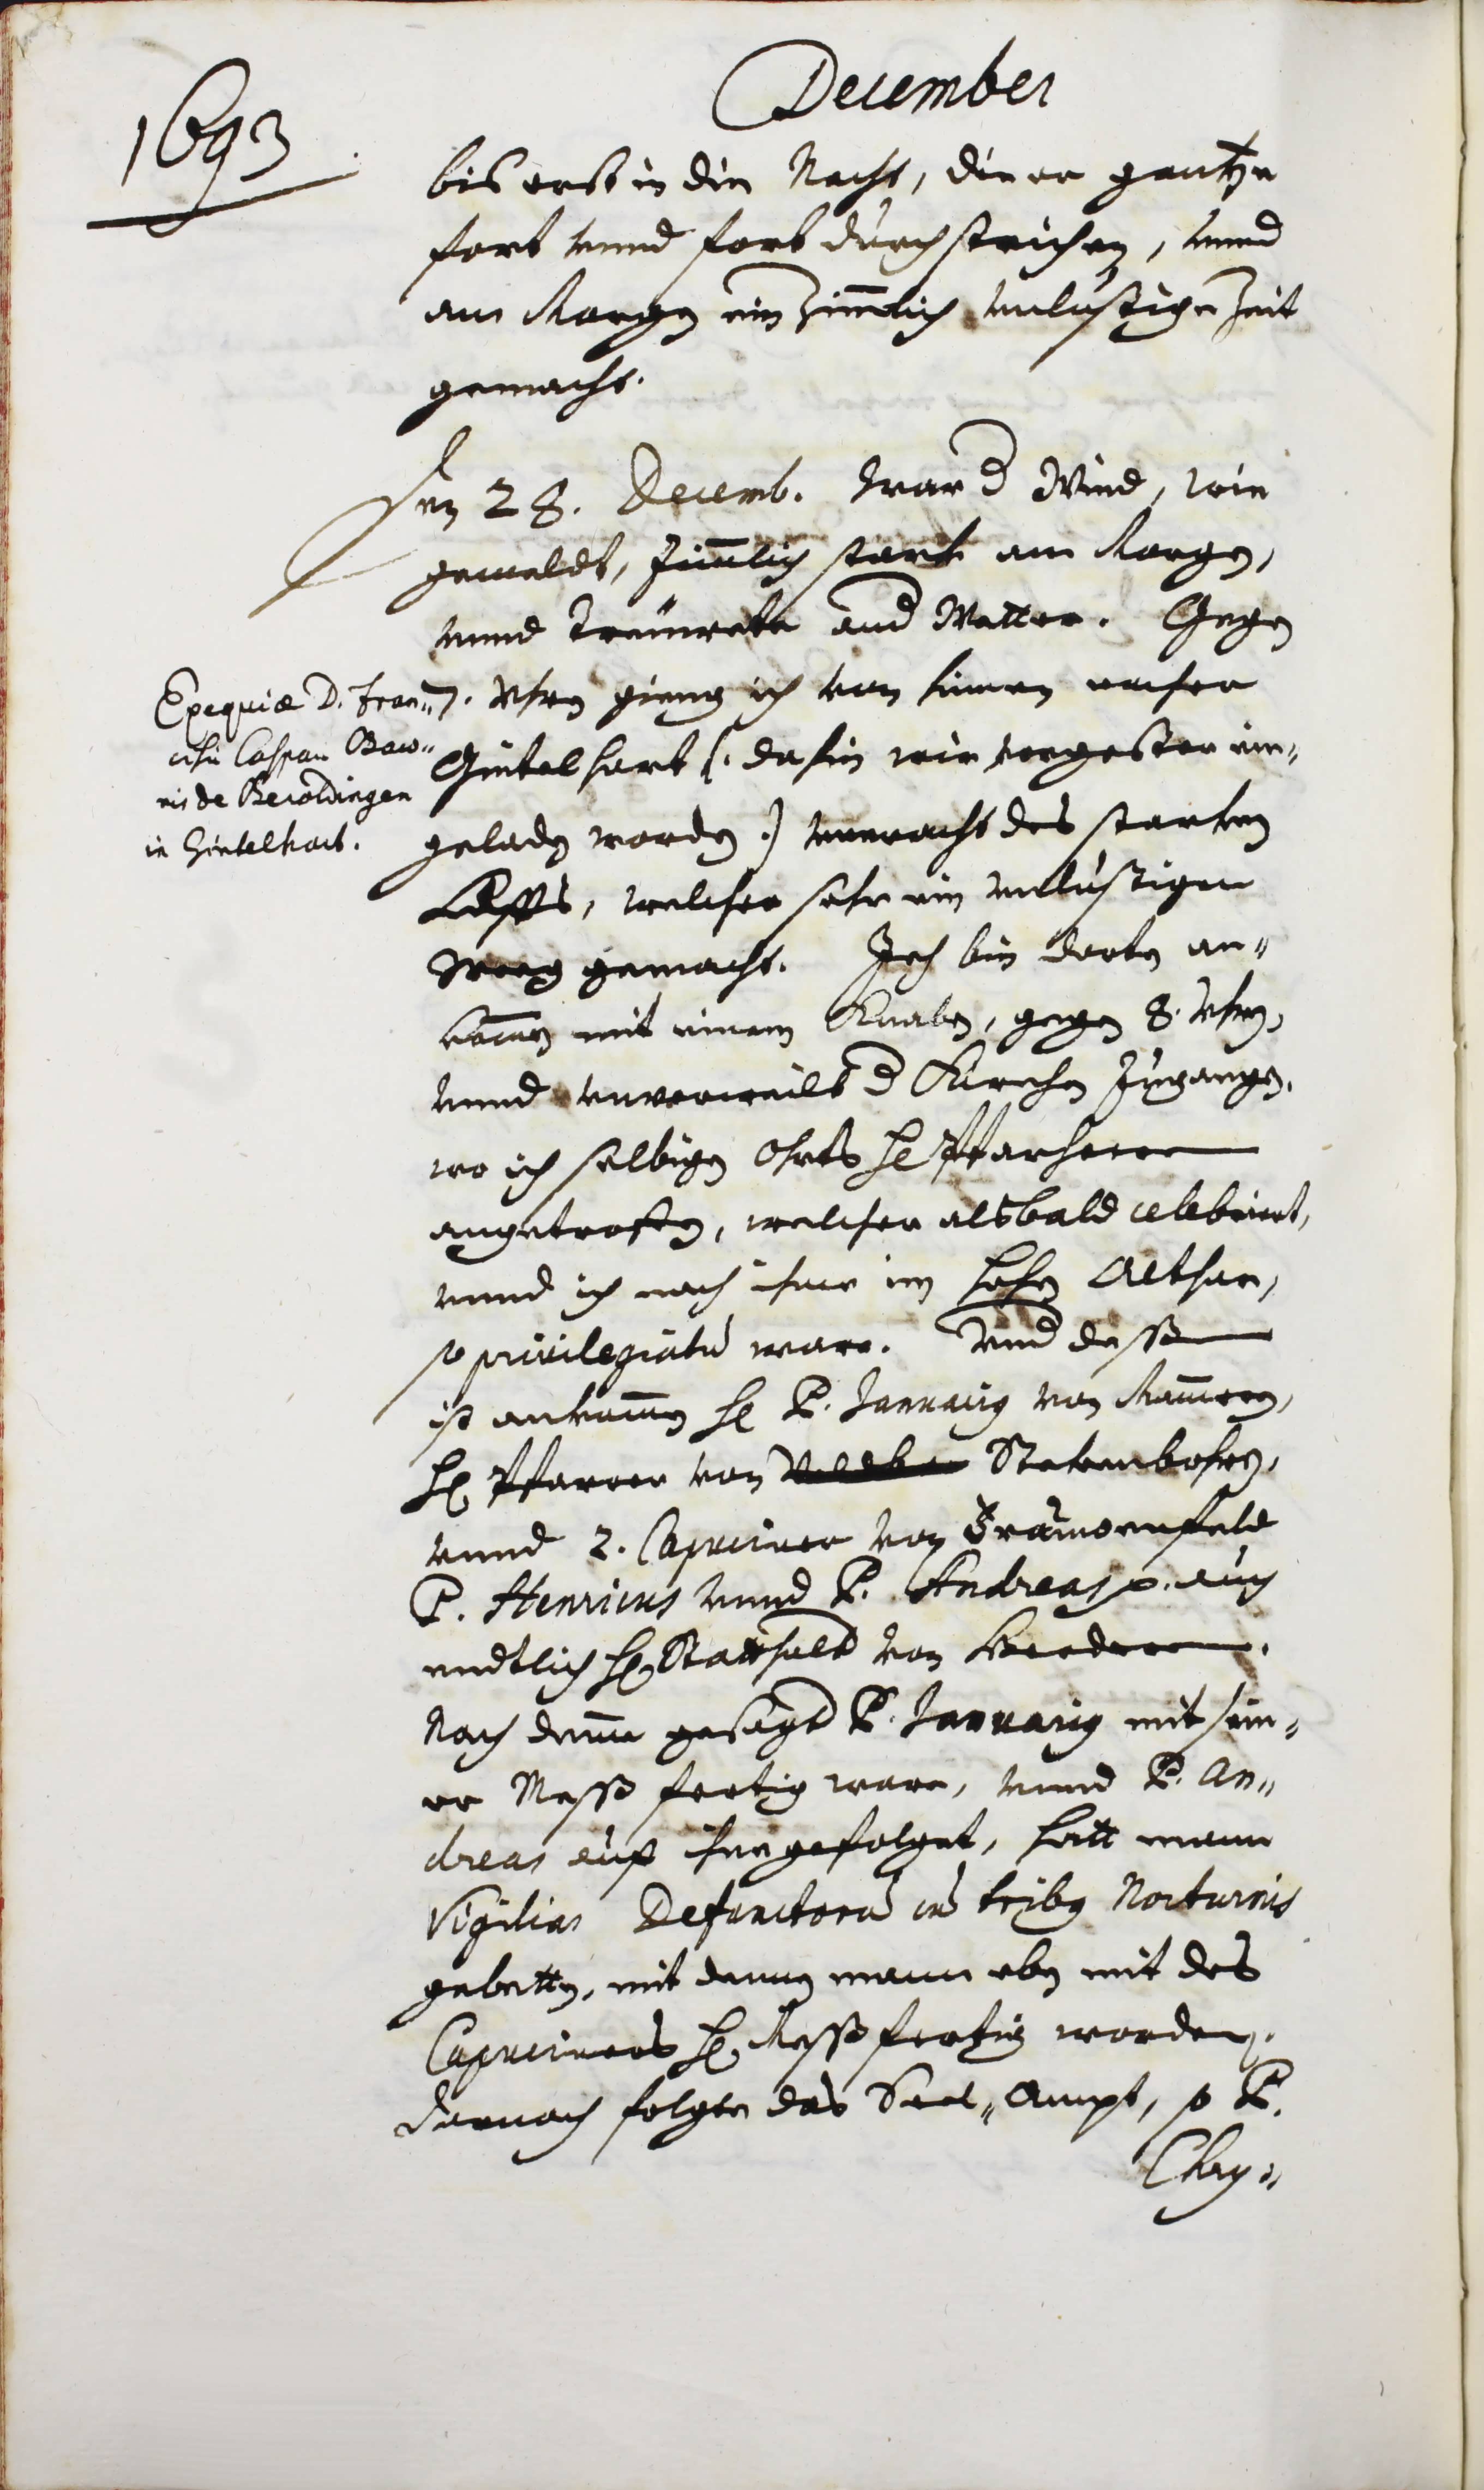 1693
December
bis erst in die Nacht, die er gantze
fort vnnd fort durchstrichen, vnnd
am Morgen ein zimlich vnlustige Zeit
gemacht.
Den 28. Decemb. war d Wind, wie
gemeldt, zimlich starkh am Morgen,
vnnd das Wetter. Gegen
7. Vhren gieng ich von hinnen nacher
Gintelhart (. dahin wir vorgester ein„
geladen worden .) vneracht des starken
Luffts, welcher sehr ein vnlustigen
Weeg gemacht. Ich bin dorten an„
komen mit einem Knaben, gegen 8. Vhren,
vnnd vnverweilt d Kirchen zugangen,
wo ich selbigen Ohrts H Pfarherren
angetroffen, welcher alsbald celebriert,
vnnd ich nach ihme im hohen Althar,
so privilegiatu ware. Vnd dessen
ist ankomen H P. Januarius von Mameren,
H Pfarrer von Stekenbohren,
vnnd 2. Capuciner von Frauwenfeld
P. Henricus vnnd P. Andreas auch
endtlich H Statthalt von Herderen.
Nach deme gesagt P. Januarius mit sein„
er Mess fertig ware, vnnd P. An„
dreas auf ihn gefolget, hatt mann
Vigilias Defunctoru cu tribus Nocturnis
gebetten, mit denen mann eben mit des
Capuciners H Mess fertig worden.
Darnach folgte das Seel„ Ampt, so P.
Chry„
Exequiæ D. Fran„
cisci Caspari Baro„
nis de Beroldingen
in Gintelhart.